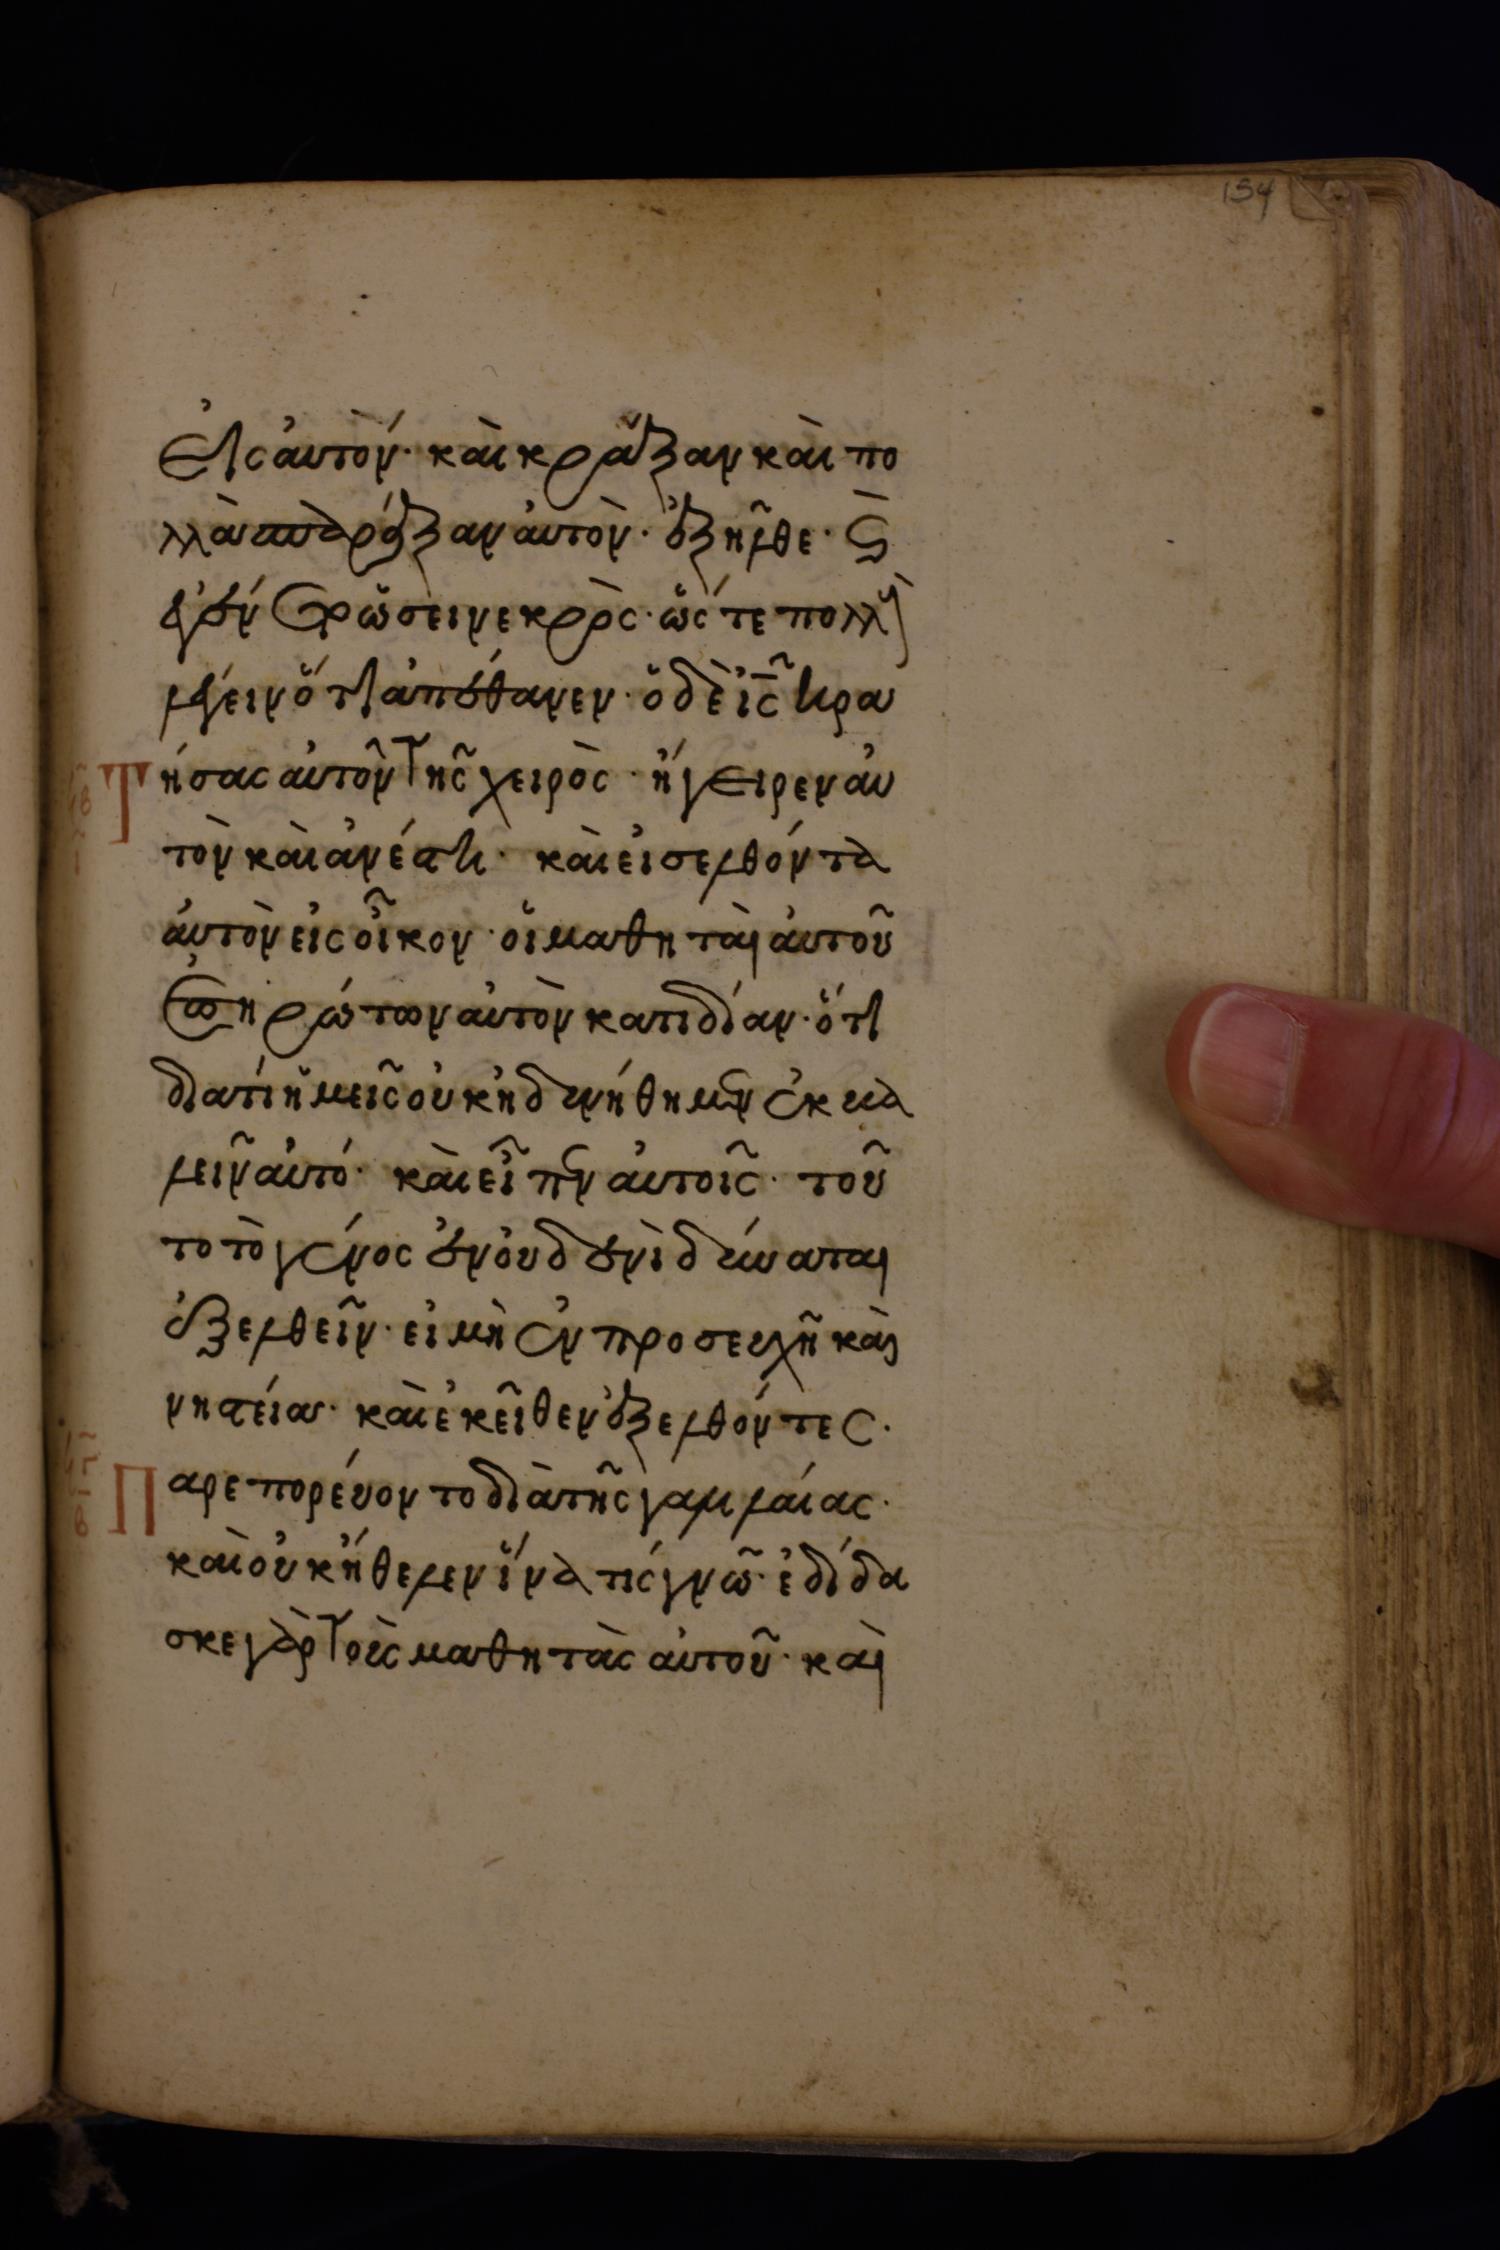 154
εἰς αὐτόν· καὶ κράξαν καὶ πο
λλὰ σπαράξαν αὐτὸν· ἐξῆλθε· καὶ
ἐγένετο ὡσεὶ νεκρὸς· ὥς τε πολλοὺς
λέγειν ὅτι ἀπέθανεν· ὁ δὲ ἰς̅ κρα
Τήσας αὐτὸν τῆς χειρὸς· ἤγειρεν αὐ
τὸν καὶ ἀνέστη· καὶ εἰσελθόντα
αὐτὸν εἰς οἶκον· οἱ μαθηταὶ αὐτοῦ
ἐπηρώτων αὐτὸν κατιδίαν· ὅτι
διατί ἡμεῖς οὐκ ἠδυνήθημεν ἐκβα
λεῖν αὐτό· καὶ εἶπεν αὐτοῖς· τοῦ
το τὸ γένος ἐν οὐδενὶ δύναται
ἐξελθεῖν· εἰ μὴ ἐν προσευχῆ καὶ
νηστεία· καὶ ἐκεῖθεν ἐξελθόντες·
Παρεπορεύοντο διὰ τῆς γαλιλαίας·
καὶ οὐκ ἤθελεν ἵνα τίς γνῶ· ἐδίδα
σκε γὰρ τοὺς μαθητὰς αὐτοῦ· καὶ